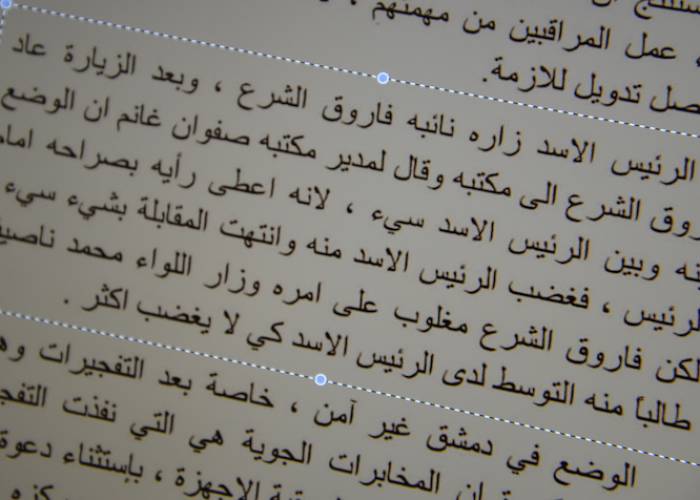 عمل المراقبين من مهمتهم ،
تدويل للازمة.
الرئيس الاسد زاره نائبه فاروق الشرع ، وبعد الزيارة عاد
الشرع الى مكتبه وقال لمدير مكتبه صفوان غانم ان الوضع
وبين الرئيس الاسد سيء ، لانه اعطى رأيه بصراحه
الرئيس ، فغضب الرئيس الاسد منه وانتهت المقابلة بشيء سيء
لكن فاروق الشرع مغلوب على امره وزار اللواء محمد ناصيف
طالباً منه التوسط لدى الرئيس الاسد كي لا يغضب اكثر .
الوضع في دمشق غير آمن ، خاصة بعد التفجيرات
المخابرات الجوية هي التي نفذت
الاجهزة ، بإستثناء دعوة